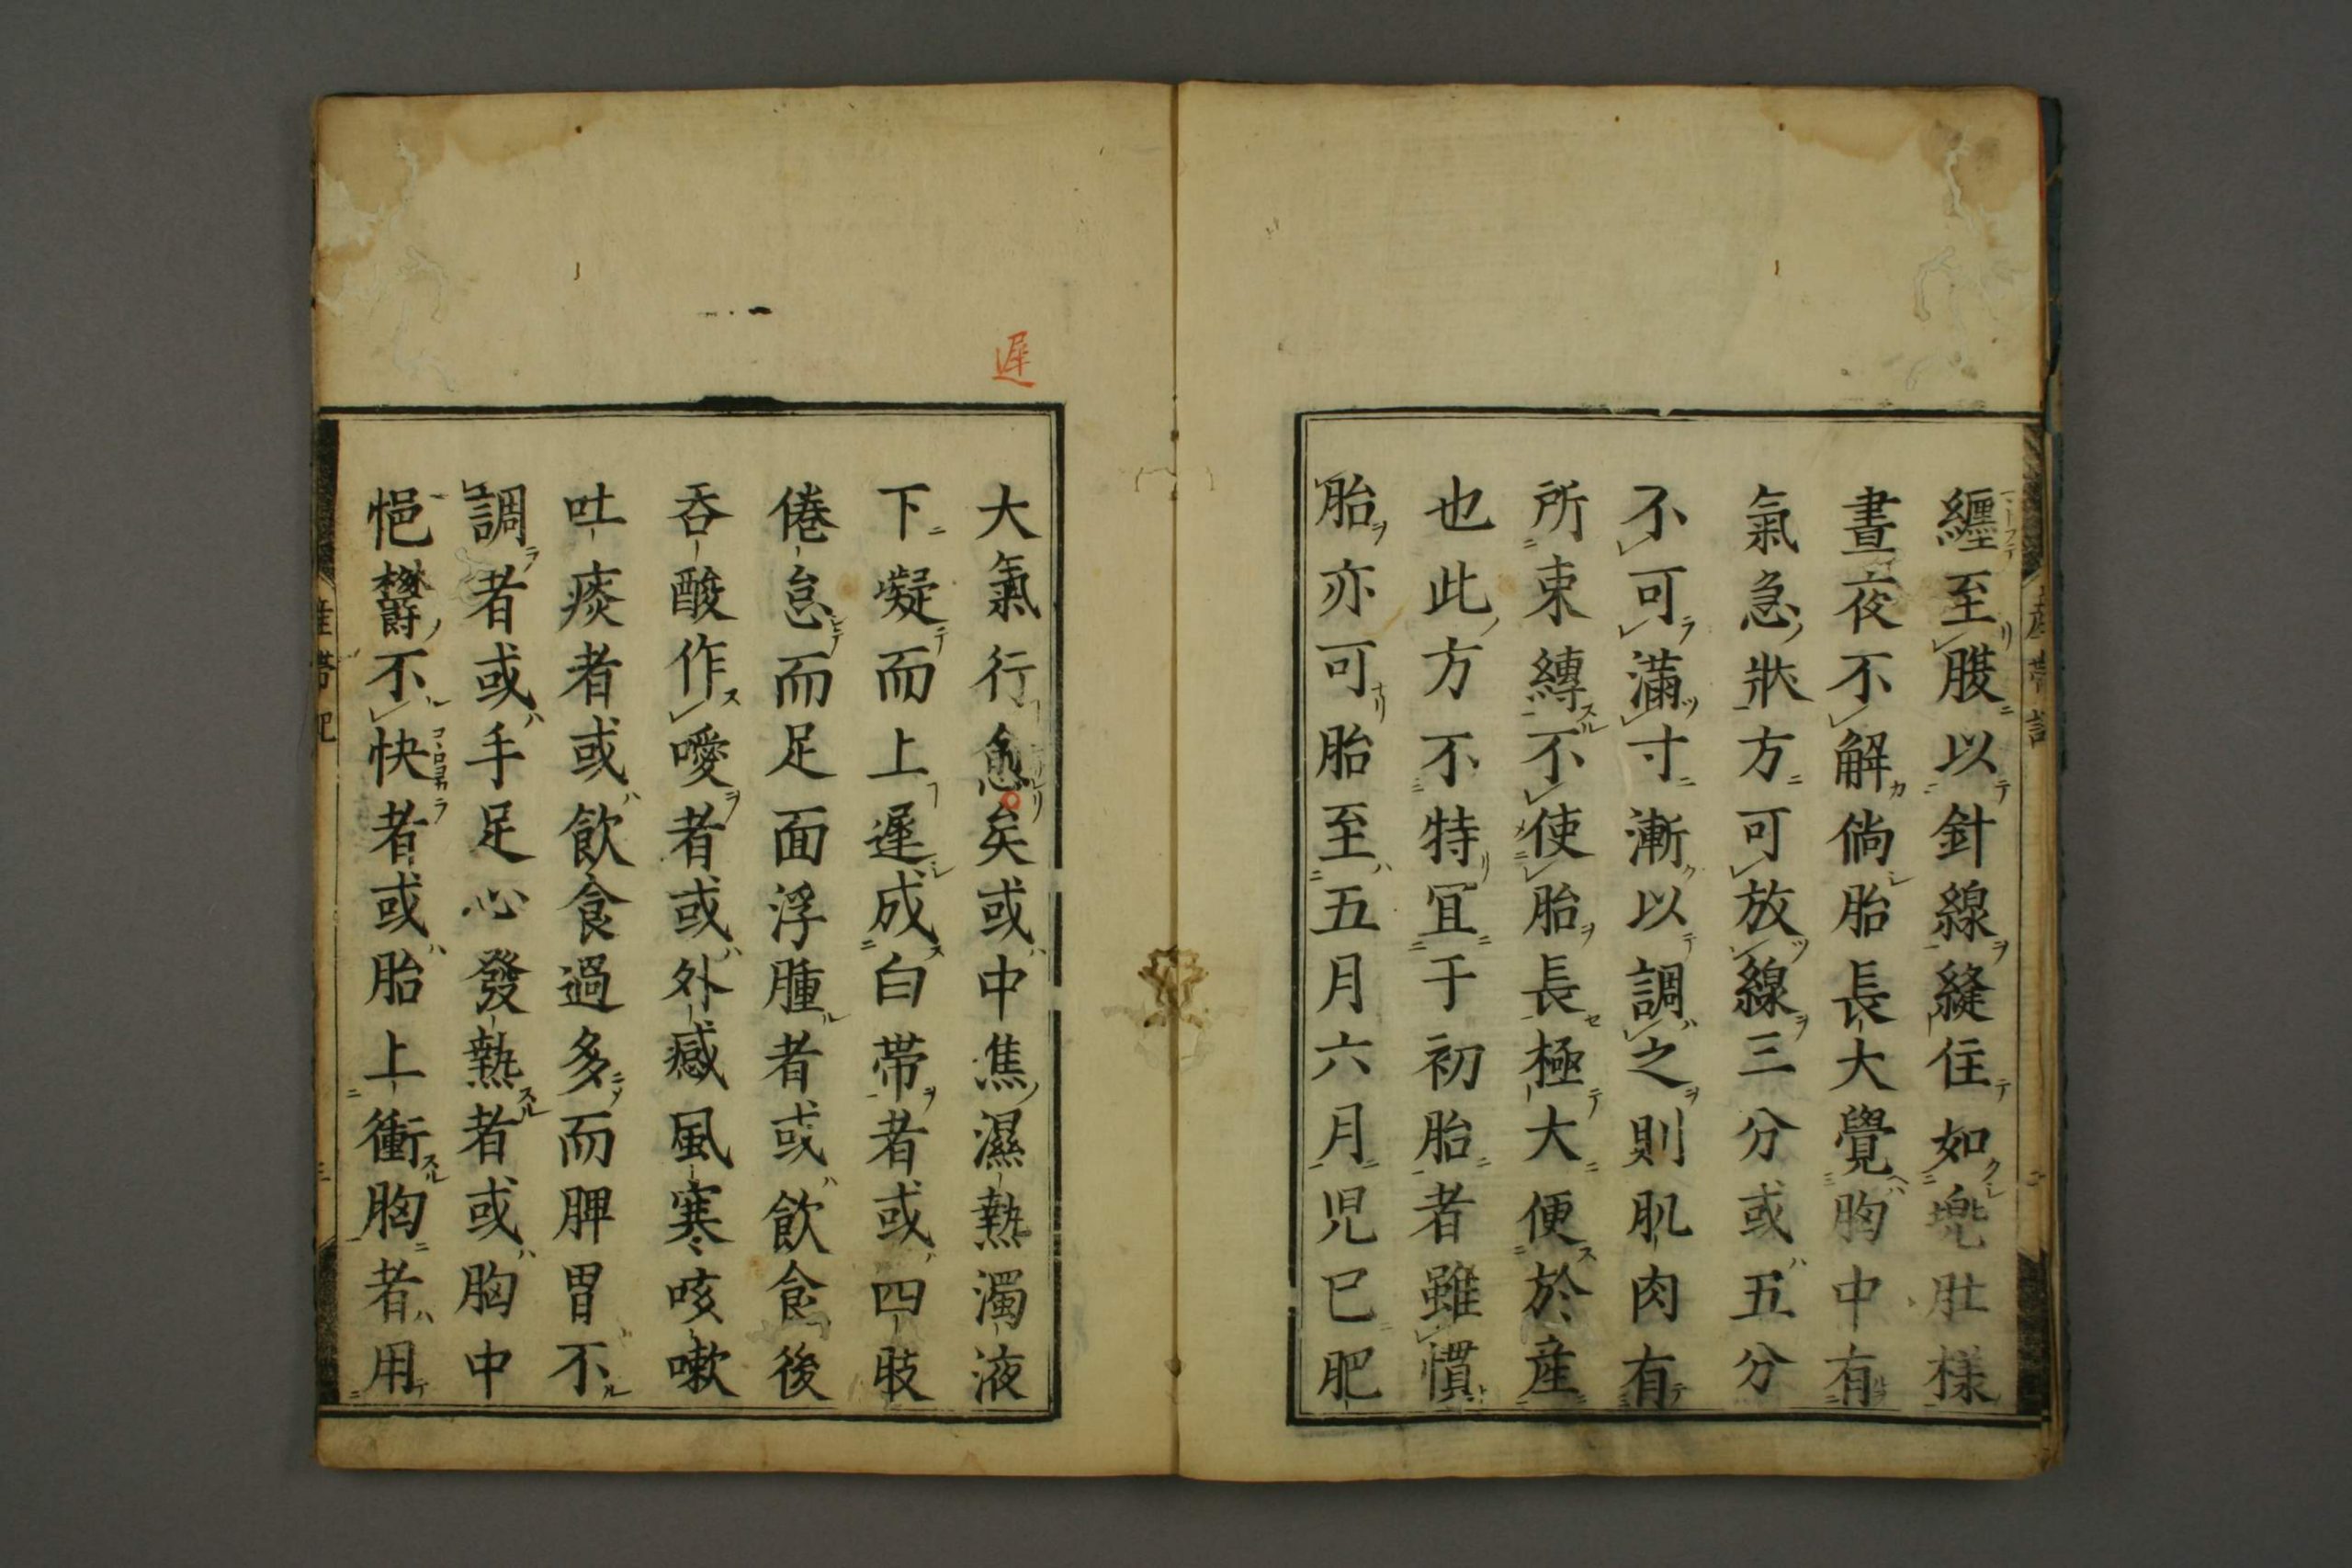 纏至腰以針線縫住如兠肚樣
晝夜不解倘胎長大覺胸中有
氣急狀方可放線三分或五分
不可滿寸漸以調之則肌肉有
所束縛不使胎長極大便於産
也此方不特宜于初胎者雖慣
胎亦可胎至五月六月児已肥
遲
大氣行愈矣或中焦濕熱濁液
下凝而上遲成白帯者或四肢
倦怠而足面浮腫者或飲食後
吞酸作噯者或外感風寒咳嗽
吐痰者或飲食過多而脾胃不
調者或手足心發熱者或胸中
悒欝不快者或胎上衝胸者用